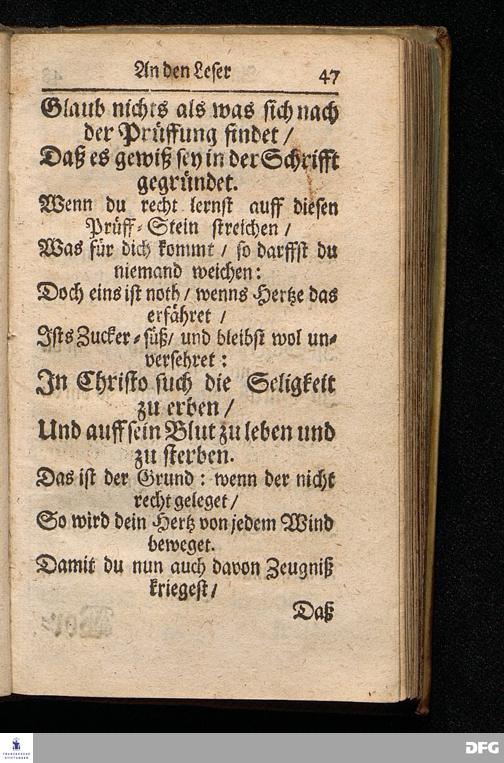 An den Leser 47
Glaub nichts als was sich nach
der Prüffung findet /
Daß es gewiß sey in der Schrifft
gegründet.
Wenn du recht lernst auff diesen
Prüff-Stein streichen /
Was für dich kommt / so darffst du
niemand weichen:
Doch eins ist noth / wenns Hertze das
erfähret /
Ists Zucker-süß / und bleibst wol un-
versehret:
In Christo such die Seligkeit
zu erben /
Und auff sein Blut zu leben und
zu sterben.
Das ist der Grund: wenn der nicht
recht geleget /
So wird dein Hertz von jedem Wind
beweget.
Damit du nun auch davon Zeugniß
kriegest /
Daß
FRANCKESCHE
STIFTUNGEN
DFG